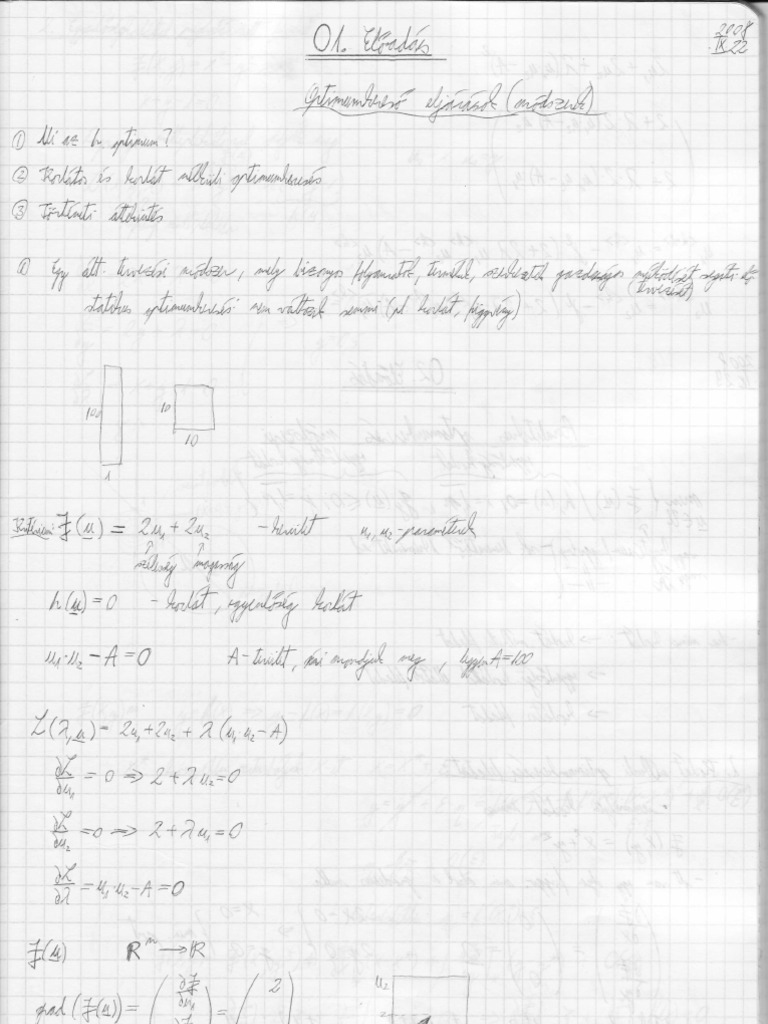 01. Előadás
2008
IX 22
Optimumkereső eljárások (módszerek)
① Mi az optimum?
② Korlátos és korlát nélküli optimumkeresés
③ Történeti áttekintés
① Egy ált. tervezési módszer, mely bizonyos folyamatok, termékek, szerkezetek gazdaságos működését segíti
(tervezését)
statikus optimumkeresés: nem változik semmi (pl. korlát, függvény)
100
1
10
10
Kritérium: F(u) = 2u₁ + 2u₂ - kerület u₁, u₂ - paraméterek
szélesség magasság
h(u) = 0 - korlát, egyenlőség korlát
u₁·u₂ - A = 0 A - terület, mi mondjuk meg, legyen A=100
L(λ,u) = 2u₁ + 2u₂ + λ(u₁·u₂ - A)
∂L/∂u₁ = 0 ⇒ 2 + λu₂ = 0
∂L/∂u₂ = 0 ⇒ 2 + λu₁ = 0
∂L/∂λ = u₁·u₂ - A = 0
F(u) Rᵐ → R
u₂
grad (F(u)) = ( ∂F/∂u₁ ) = ( 2